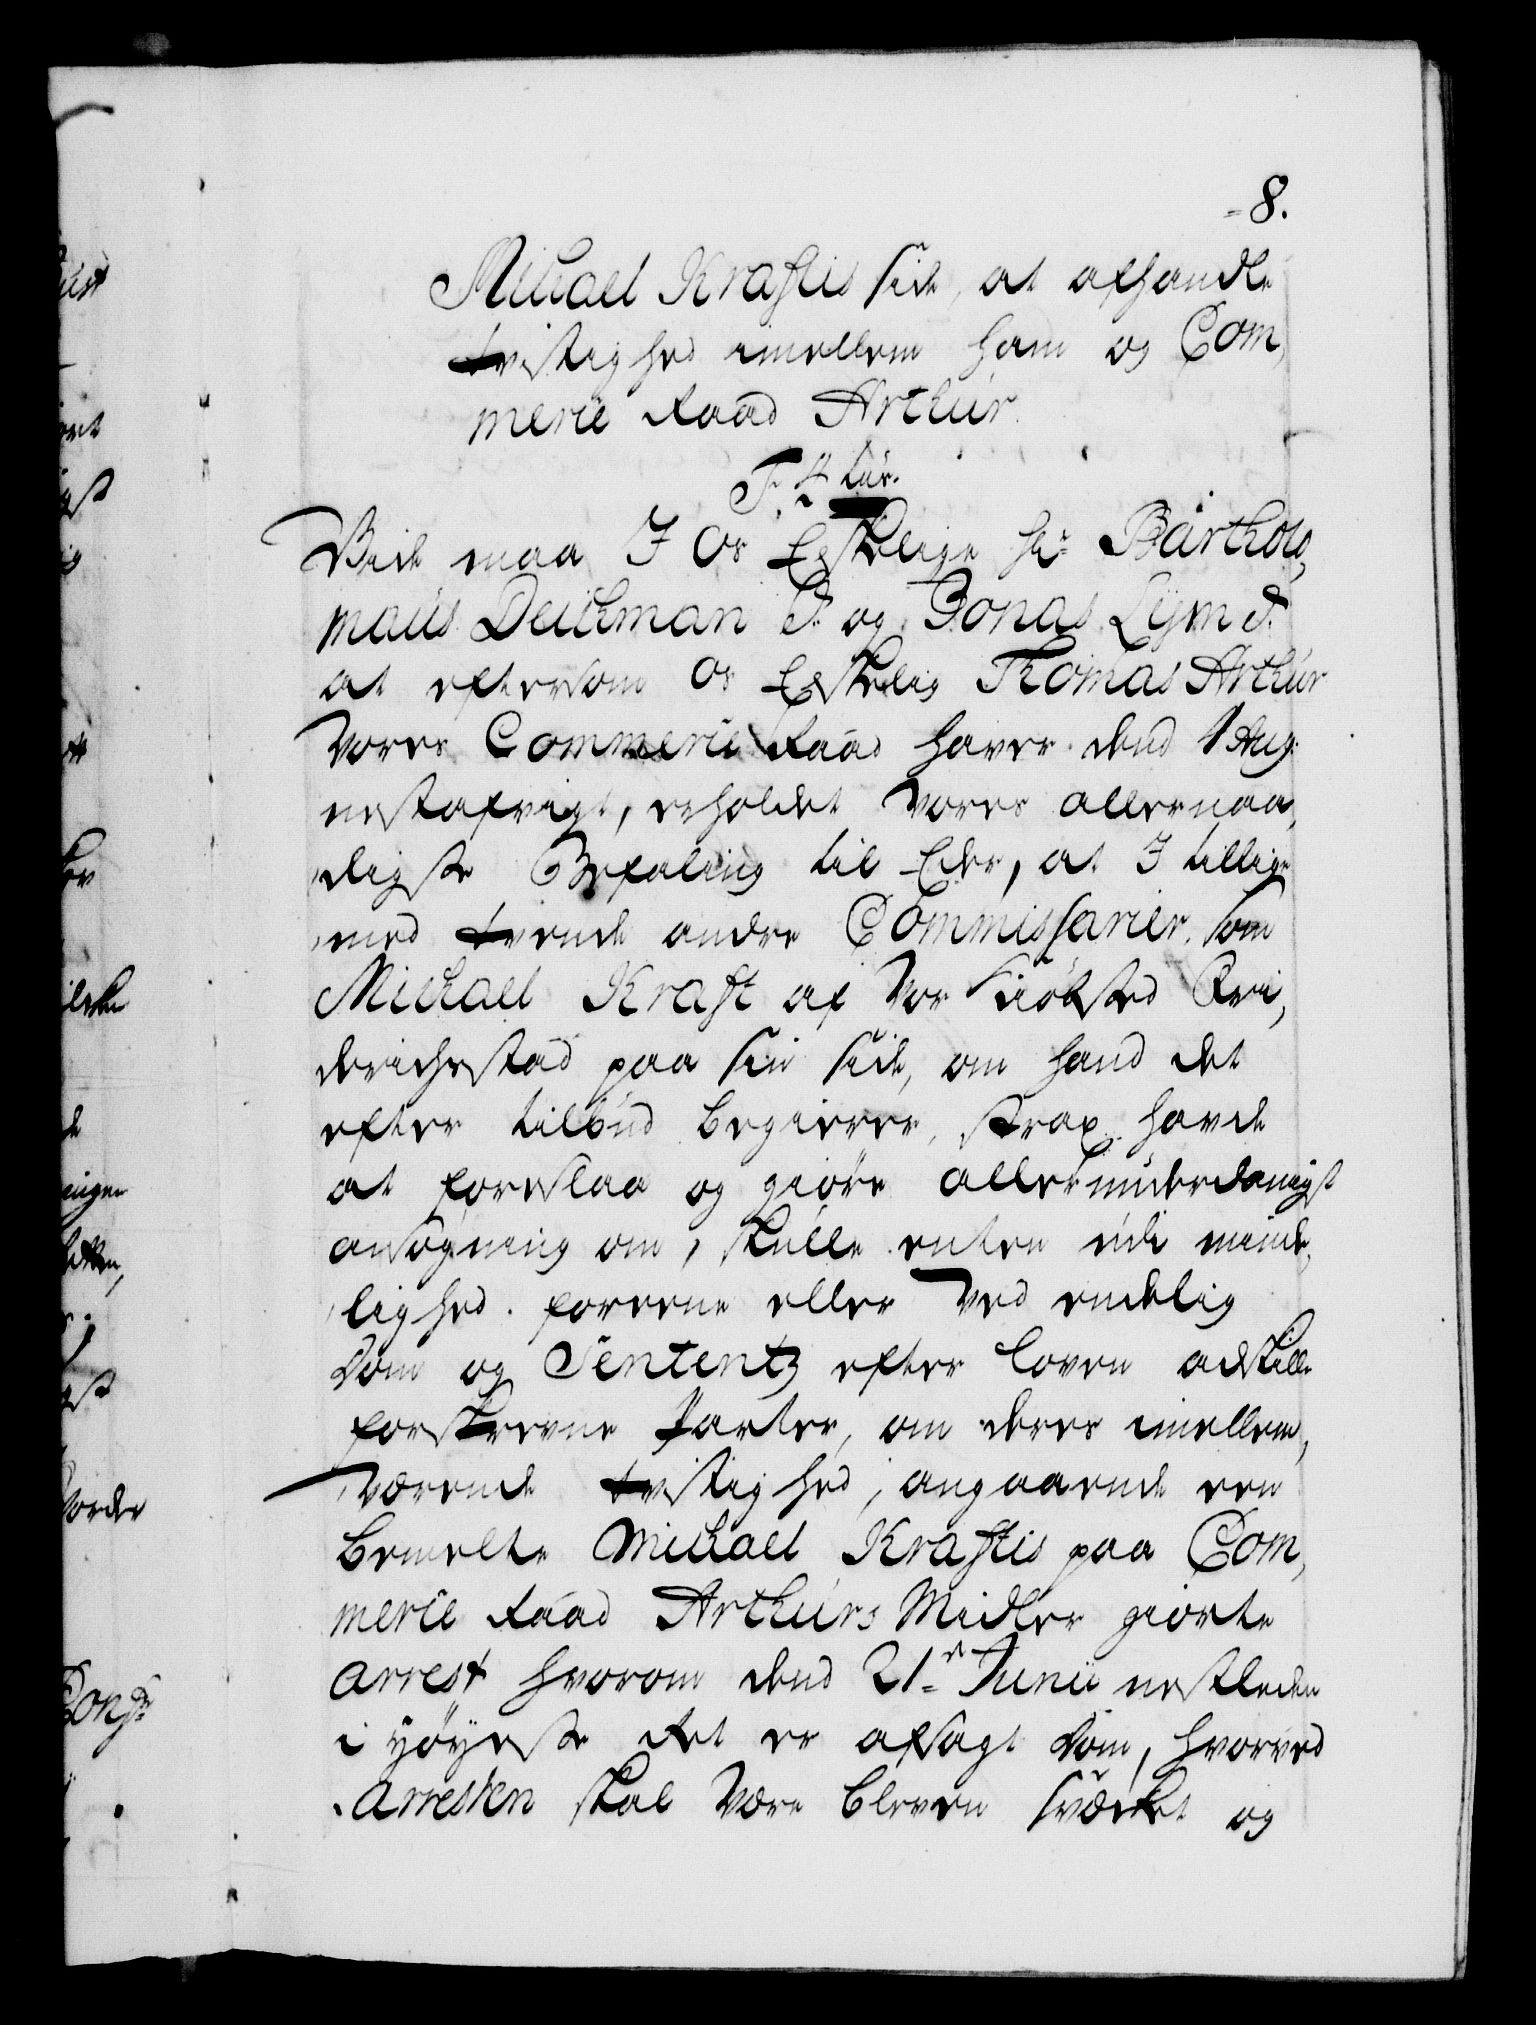 8.
Michael Kraftis side, at afhandle
tvistighed imellem ham og Com,
merce Raad Arthur.
F. 4 tus.
Vide maa I Os Elskelige hr Bartholo,
mæus Deichman S. og Jonas Lÿm S.
at eftersom Os Elskelig Thomas Arthur
Vores Commerce Raad haver dend 1 Aug:
nestafvigt, erholdet Vores allernaa,
digste Befaling til Eder, at I tillige
med tvende andre Commissarier, som
Michael Kraft af Vor Kiøbsted Fri,
derichstad paa sin side, om hand det
efter tilbud begierer, strax hafde
at foreslaa og giøre allerunderdanigst
ansøgning om, skulle enten udi minde,
lighed foreene eller Ved endelig
Dom og Sententz efter loven adskille
forskrevne Parter, om deres imellem,
Værende tvistighed, angaaende een
bemelte Michael Kraftis paa Com,
merce Raad Arthurs Midler giorte
Arrest hvorom dend 21de Junii nestleden
i Høyeste Ret er afsagt Dom, hvorved
Arresten skal Være bleven svæcket og